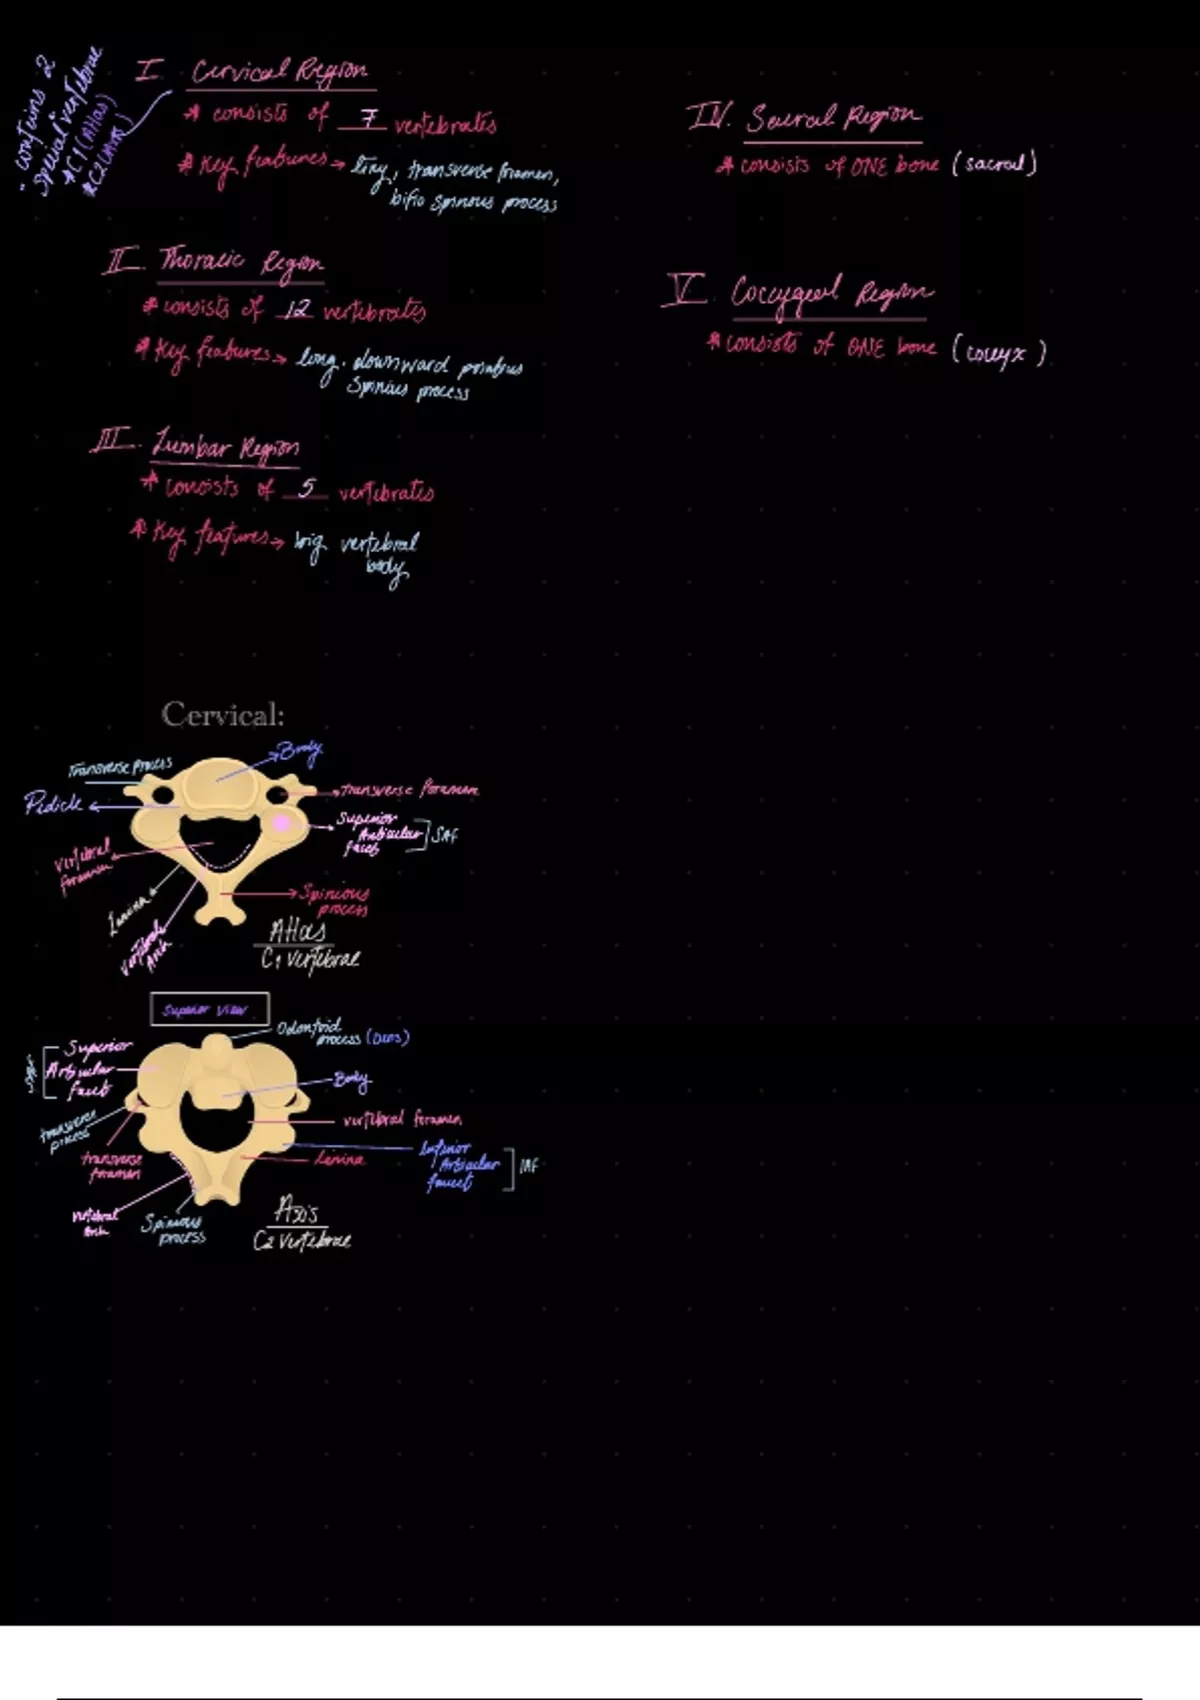 "contains 2
special" vertebrae
*C1 (Atlas)
*C2 (Axis)
I. Cervical Region
* consists of 7 vertebrates
* Key features → tiny, transverse foramen,
bifid spinous process
II. Thoracic Region
* consists of 12 vertebrates
* Key features → long. downward
spinius process
III. Lumbar Region
* consists of 5 vertebrates
* Key features → big vertebral
body
IV. Sacral Region
* consists of ONE bone (sacral)
V. Coccygeal Region
* consists of ONE bone (coccyx)
Cervical:
Transverse process
Body
Pedicle
transverse foramen
Superior
Articular
facet
SAF
vertebral
foramen
Lamina
vertebral
Arch
Spinious
process
Atlas
C1 vertebrae
Superior View
Odontoid
process (Dens)
Superior
Articular
facet
SAF
Body
transverse
process
vertebral foramen
transverse
foramen
Lamina
Inferior
Articular
facet
IAF
vertebral
Arch
Spinious
process
Axis
C2 vertebrae